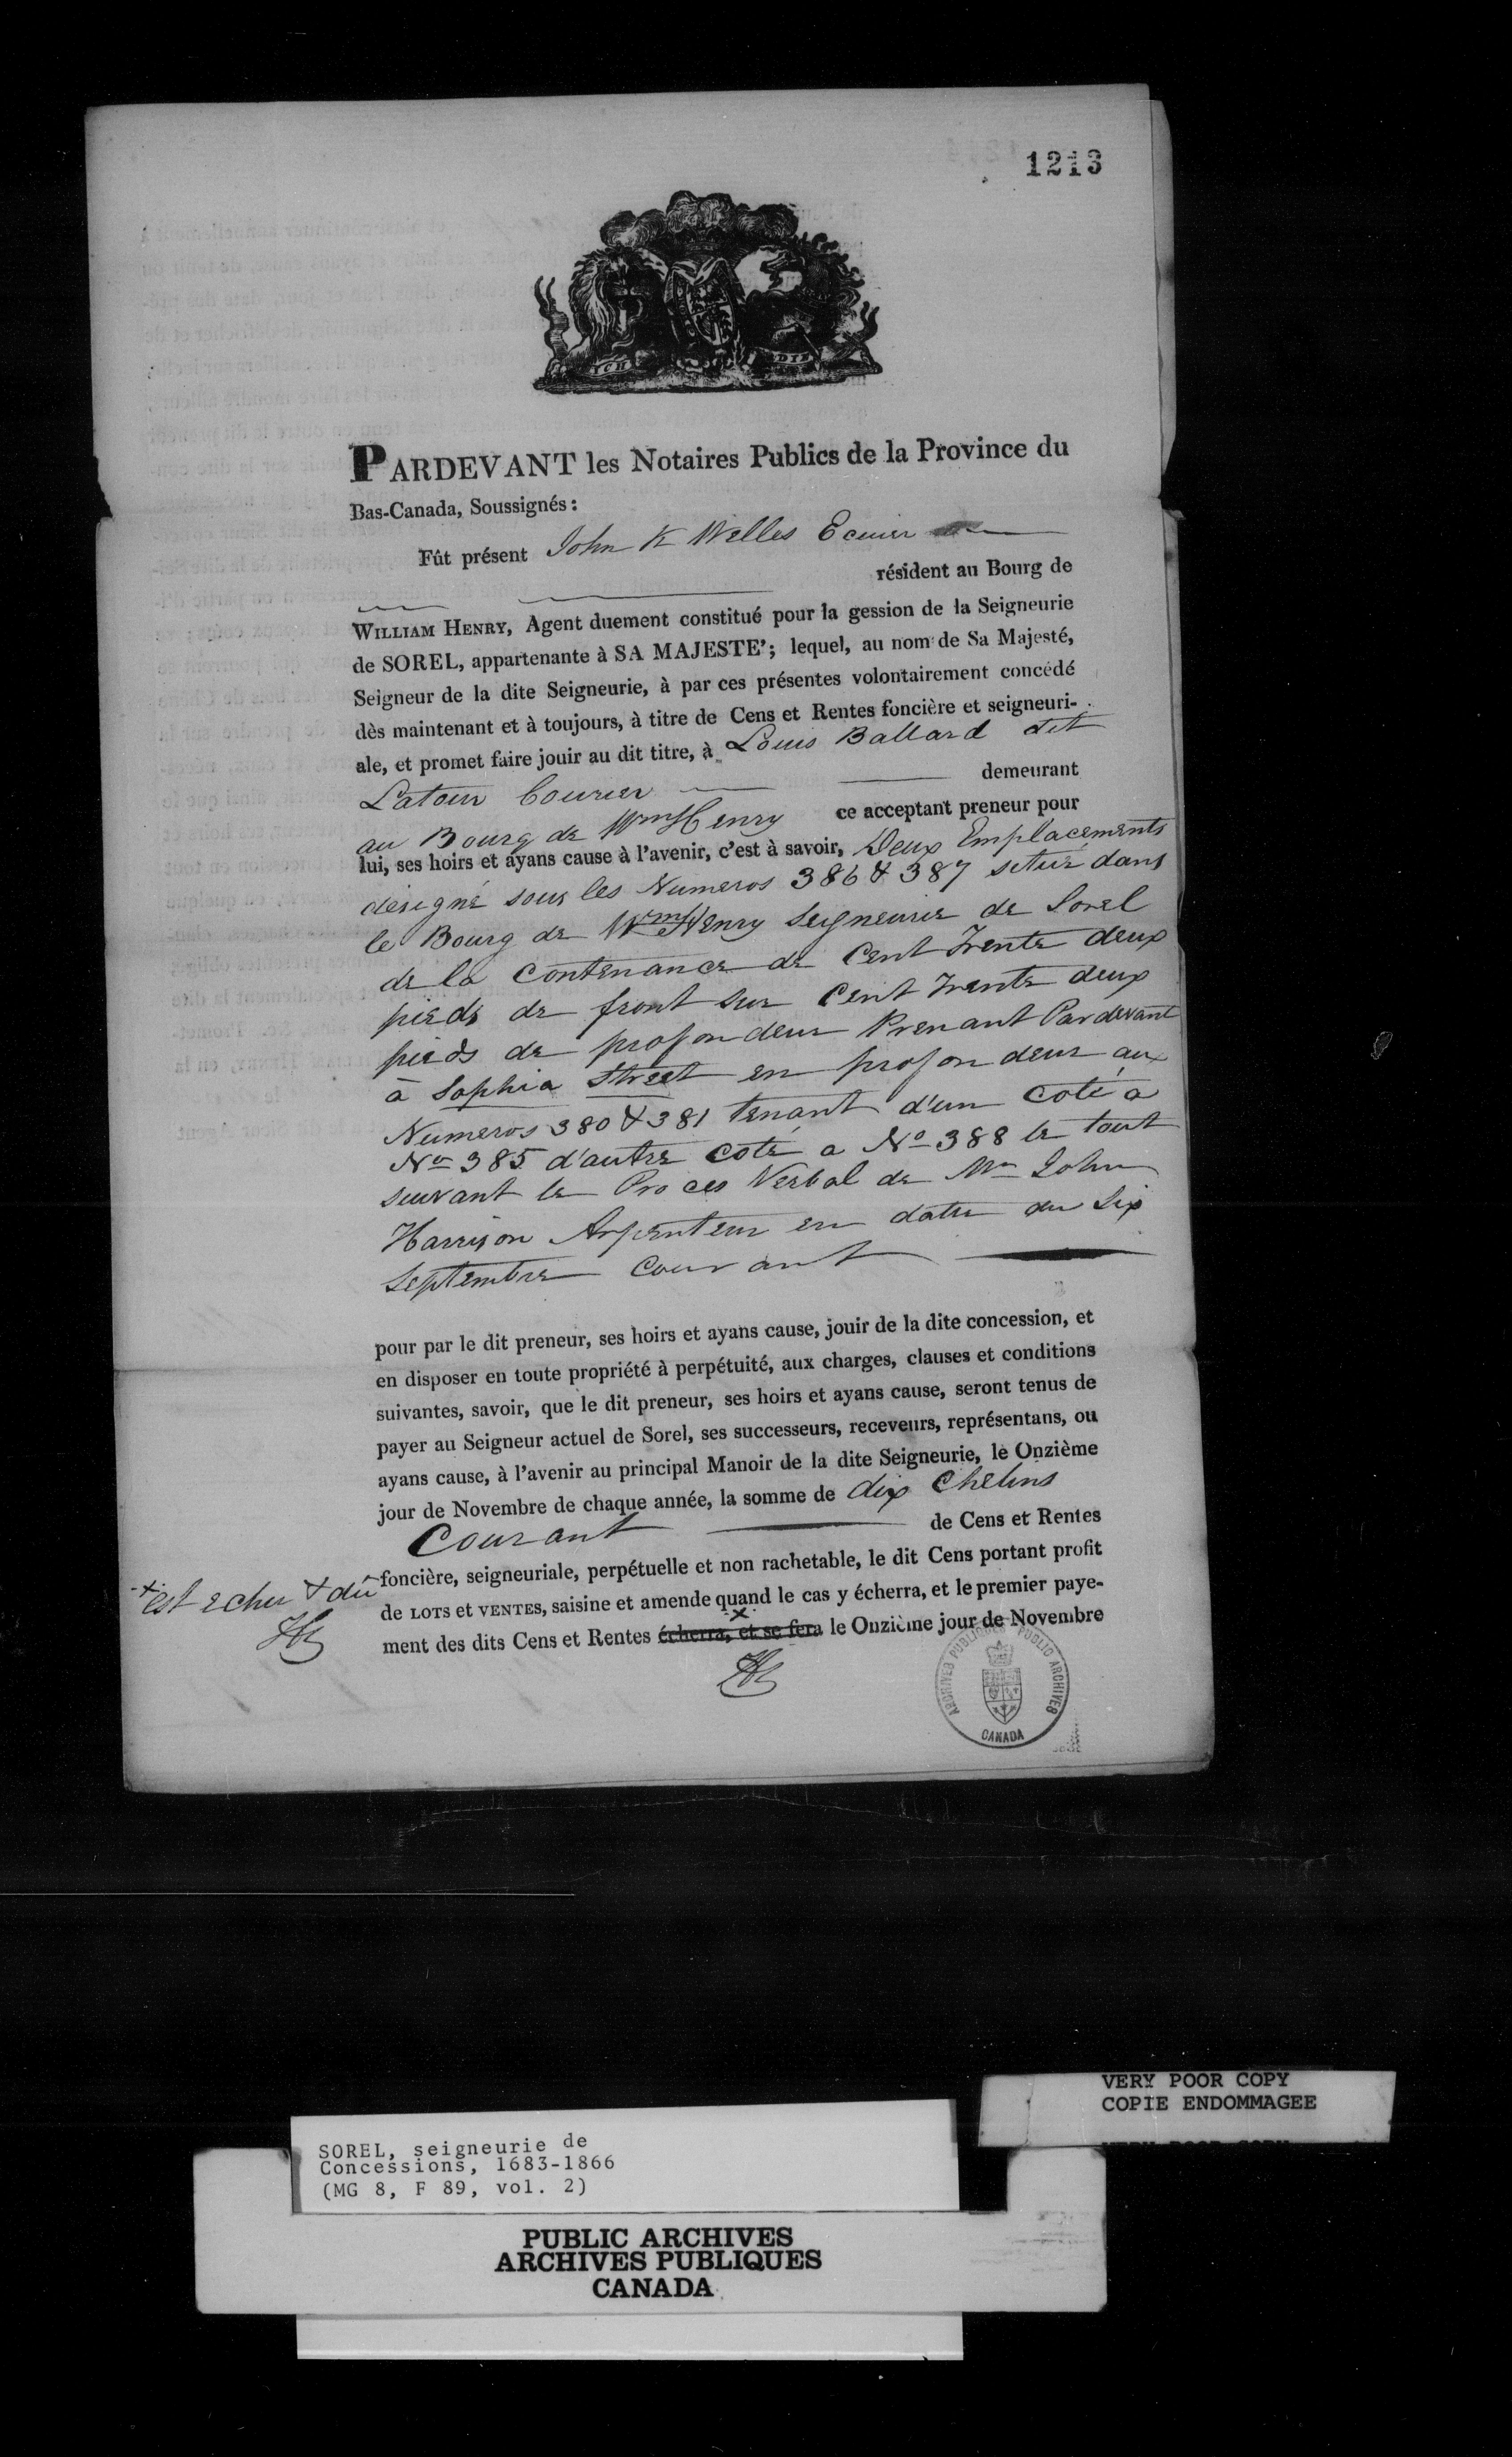 1213
PARDEVANT les Notaires Publics de la Province du
Bas-Canada, Soussignés:
Fût présent John K Welles Ecuier
résident au Bourg de
WILLIAM HENRY, Agent duement constitué pour la gession de la Seigneurie
de SOREL, appartenante à SA MAJESTE'; lequel, au nom de Sa Majesté,
Seigneur de la dite Seigneurie, à par ces présentes volontairement concédé
dès maintenant et à toujours, à titre de Cens et Rentes foncière et seigneuri-
ale, et promet faire jouir au dit titre, à Louis Ballard dit
Latour Courier demeurant
au Bourg de Wm Henry ce acceptant preneur pour
lui, ses hoirs et ayans cause à l'avenir, c'est à savoir, Deux Emplacements
designé sous les Numeros 386 & 387 situé dans
le Bourg de Wm Henry Seigneurie de Sorel
de la Contenance de Cent Trente deux
pieds de front sur Cent Trente deux
pieds de profondeur Prenant Pardevant
à Sophia Street en profondeur aux
Numeros 380 & 381 tenant d'un coté a
No 385 d'autre coté a No 388 le tout
suivant le Proces Verbal de Mr John
Harrison Arpenteur en datte du Six
Septembre Courant
pour par le dit preneur, ses hoirs et ayans cause, jouir de la dite concession, et
en disposer en toute propriété à perpétuité, aux charges, clauses et conditions
suivantes, savoir, que le dit preneur, ses hoirs et ayans cause, seront tenus de
payer au Seigneur actuel de Sorel, ses successeurs, receveurs, représentans, ou
ayans cause, à l'avenir au principal Manoir de la dite Seigneurie, le Onzième
jour de Novembre de chaque année, la somme de dix Chelins
Courant de Cens et Rentes
foncière, seigneuriale, perpétuelle et non rachetable, le dit Cens portant profit
de LOTS et VENTES, saisine et amende quand le cas y écherra, et le premier paye-
ment des dits Cens et Rentes écherra, et se fera le Onzième jour de Novembre
+ est echu & dû
ARCHIVES PUBLIQUES PUBLIC ARCHIVES
CANADA
VERY POOR COPY
COPIE ENDOMMAGEE
SOREL, seigneurie de
Concessions, 1683-1866
(MG 8, F 89, vol. 2)
PUBLIC ARCHIVES
ARCHIVES PUBLIQUES
CANADA